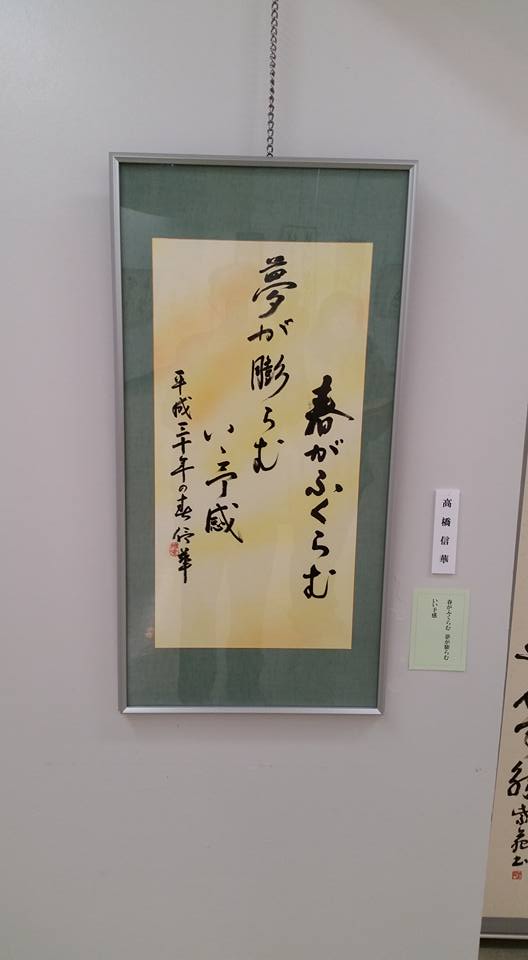 春がふくらむ
夢が膨らむ
いゝ予感
平成三十年の春 信華
高橋信華
春がふくらむ 夢が膨らむ
いい予感